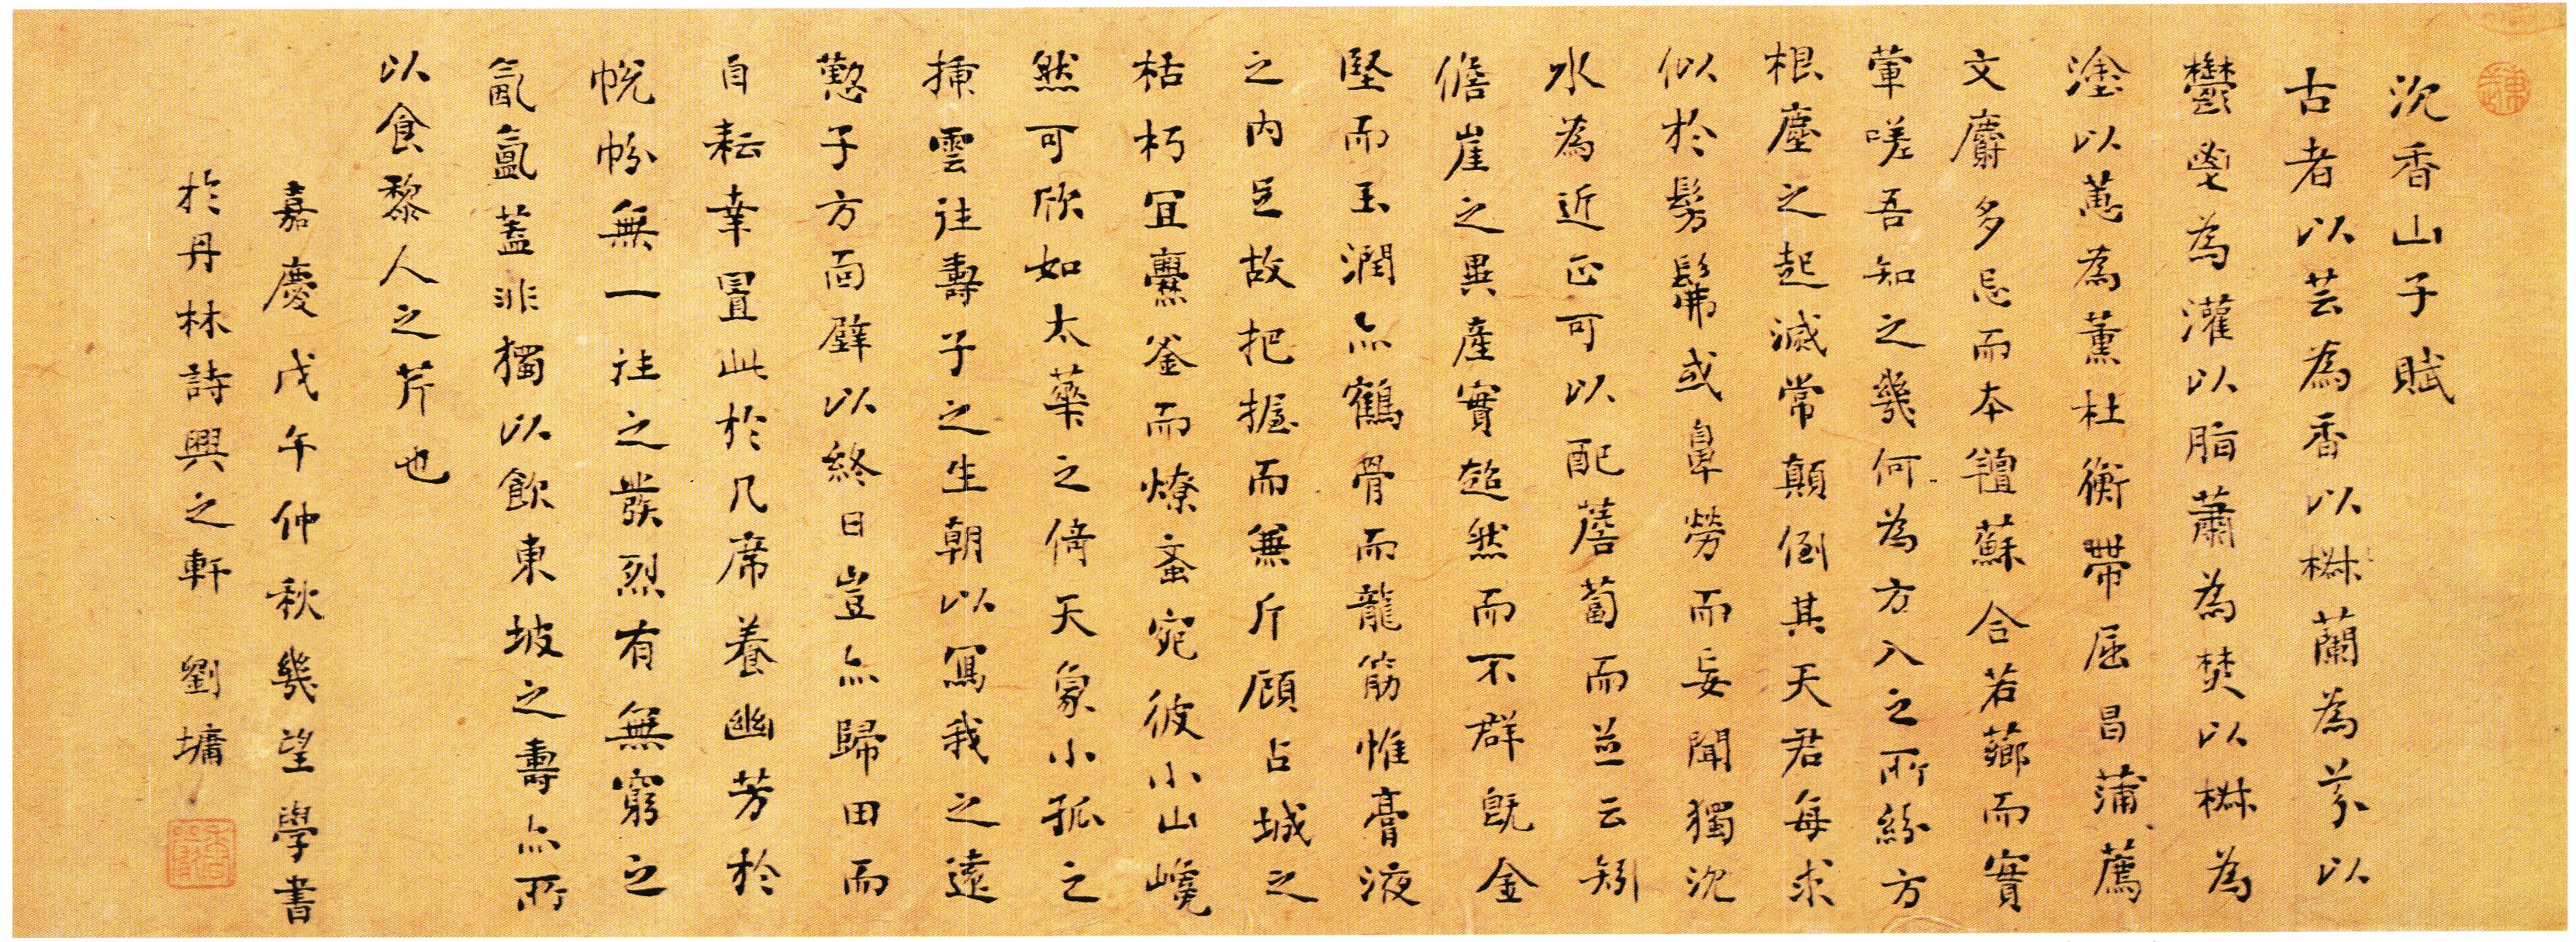 沉香山子賦
古者以芸為香以椒蘭為芬以
鬱鬯為灌以脂蕭為焚以椒為
塗以蕙為薰杜衡帶屈昌蒲薦
文麝多忌而本羶蘇合若薌而實
葷嗟吾知之幾何為六入之所紛方
根塵之起滅常顛倒其天君每求
似於髣髴或鼻勞而妄聞獨沉
水為近正可以配薝蔔而並云矧
儋崖之異產實超然而不群既金
堅而玉潤亦鶴骨而龍筋惟膏液
之内足故把握而兼斤顧占城之
枯朽宜爨釜而燎蚉宛彼小山巉
然可欣如太華之倚天象小孤之
揷雲往壽子之生朝以寫我之遠
懃子方面壁以終日豈亦歸田而
自耘幸置此於几席養幽芳於
帨帉無一往之發烈有無窮之
氤氳蓋非獨以飲東坡之壽亦所
以食黎人之芹也
嘉慶戊午仲秋幾望學書
於丹林詩興之軒 劉墉